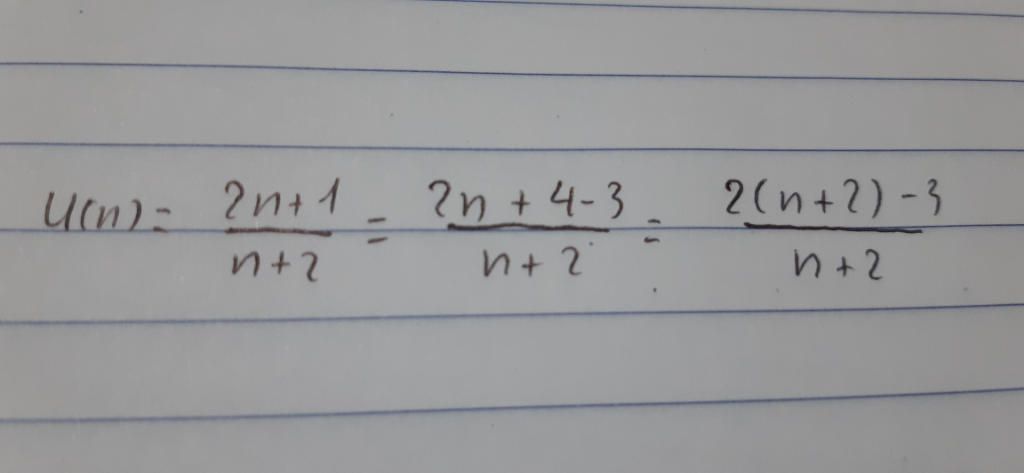 U(n) = (2n+1)/(n+2) = (2n+4-3)/(n+2) = (2(n+2)-3)/(n+2)